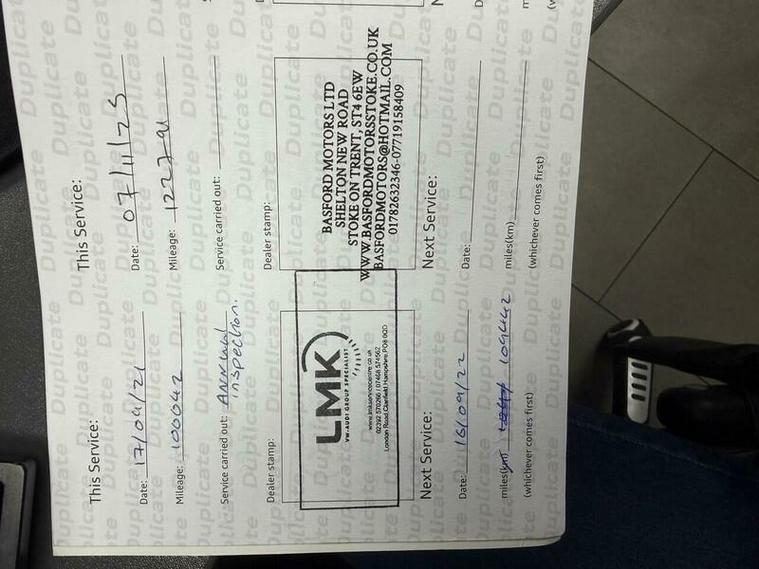 This Service:
Date: 17/09/21
Mileage: 100042
Service carried out: Annual
inspection.
Dealer stamp:
LMK
VW-AUDI GROUP SPECIALIST
www.lmkservicecentre.co.uk
02392 570266 / 07466 574562
London Road, Clanfield Hampshire, PO8 0QD
Next Service:
Date: 16/09/22
miles(km) 109442
(whichever comes first)
This Service:
Date: 07/11/23
Mileage:
Service carried out:
Dealer stamp:
BASFORD MOTORS LTD
SHELTON NEW ROAD
STOKE ON TRENT, ST4 6EW
WWW.BASFORDMOTORSSTOKE.CO.UK
BASFORDMOTORS@HOTMAIL.COM
01782632346-07719158409
Next Service:
Date:
miles(km)
(whichever comes first)
Duplicate Duplicate Duplicate Duplicate